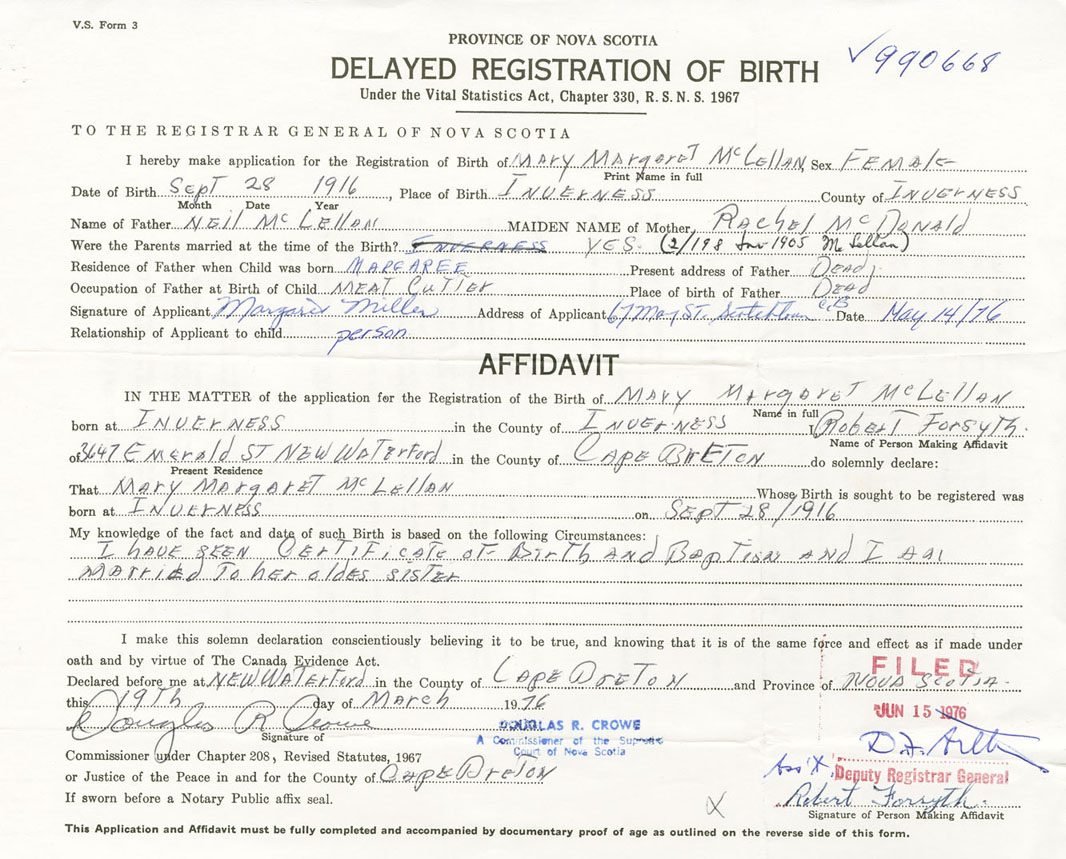 V.S. Form 3
PROVINCE OF NOVA SCOTIA
✓990668
DELAYED REGISTRATION OF BIRTH
Under the Vital Statistics Act, Chapter 330, R.S.N.S. 1967
TO THE REGISTRAR GENERAL OF NOVA SCOTIA
I hereby make application for the Registration of Birth of MARY MARGARET McLELLAN, Sex FEMALE
Print Name in full
Date of Birth SEPT 28 1916, Place of Birth INVERNESS County of INVERNESS
Month Date Year
Name of Father NEIL McLELLAN MAIDEN NAME of Mother RACHEL McDONALD
Were the Parents married at the time of the Birth? INVERNESS YES. (2/198 Inv 1905 McLellan)
Residence of Father when Child was born MARGAREE Present address of Father DEAD
Occupation of Father at Birth of Child MEAT CUTTER Place of birth of Father DEAD
Signature of Applicant Miller Address of Applicant 67 May ST. C.B. Date May 14/76
Relationship of Applicant to child person
AFFIDAVIT
IN THE MATTER of the application for the Registration of the Birth of MARY MARGARET McLELLAN
Name in full
born at INVERNESS in the County of INVERNESS I ROBERT FORSYTH.
Name of Person Making Affidavit
of 3647 EMERALD ST NEW WATERFORD in the County of CAPE BRETON do solemnly declare:
Present Residence
That MARY MARGARET McLELLAN Whose Birth is sought to be registered was
born at INVERNESS on SEPT 28/1916
My knowledge of the fact and date of such Birth is based on the following Circumstances:
I HAVE SEEN CERTIFICATE OF BIRTH AND BAPTISM AND I AM
MARRIED TO HER OLDES SISTER
I make this solemn declaration conscientiously believing it to be true, and knowing that it is of the same force and effect as if made under
oath and by virtue of The Canada Evidence Act.
FILED
Declared before me at NEW WATERFORD in the County of CAPE BRETON and Province of NOVA SCOTIA.
this 19TH day of MARCH 1976
JUN 15 1976
Douglas R Crowe
DOUGLAS R. CROWE
Signature of
A Commissioner of the Supreme
Court of Nova Scotia
Commissioner under Chapter 208, Revised Statutes, 1967
Ass't. Deputy Registrar General
or Justice of the Peace in and for the County of CAPE BRETON
Robert Forsyth.
If sworn before a Notary Public affix seal.
X
Signature of Person Making Affidavit
This Application and Affidavit must be fully completed and accompanied by documentary proof of age as outlined on the reverse side of this form.